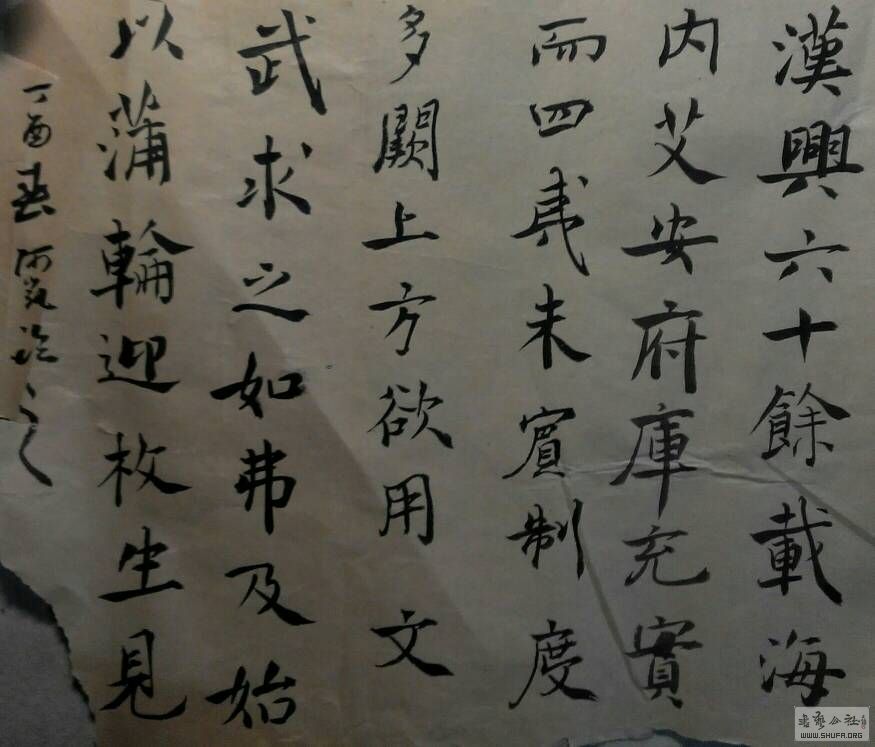 漢興六十餘載海
内艾安府庫充實
而四夷未賓制度
多闕上方欲用文
武求之如弗及始
以蒲輪迎枚生見
丁酉春
WWW.SHUFA.ORG